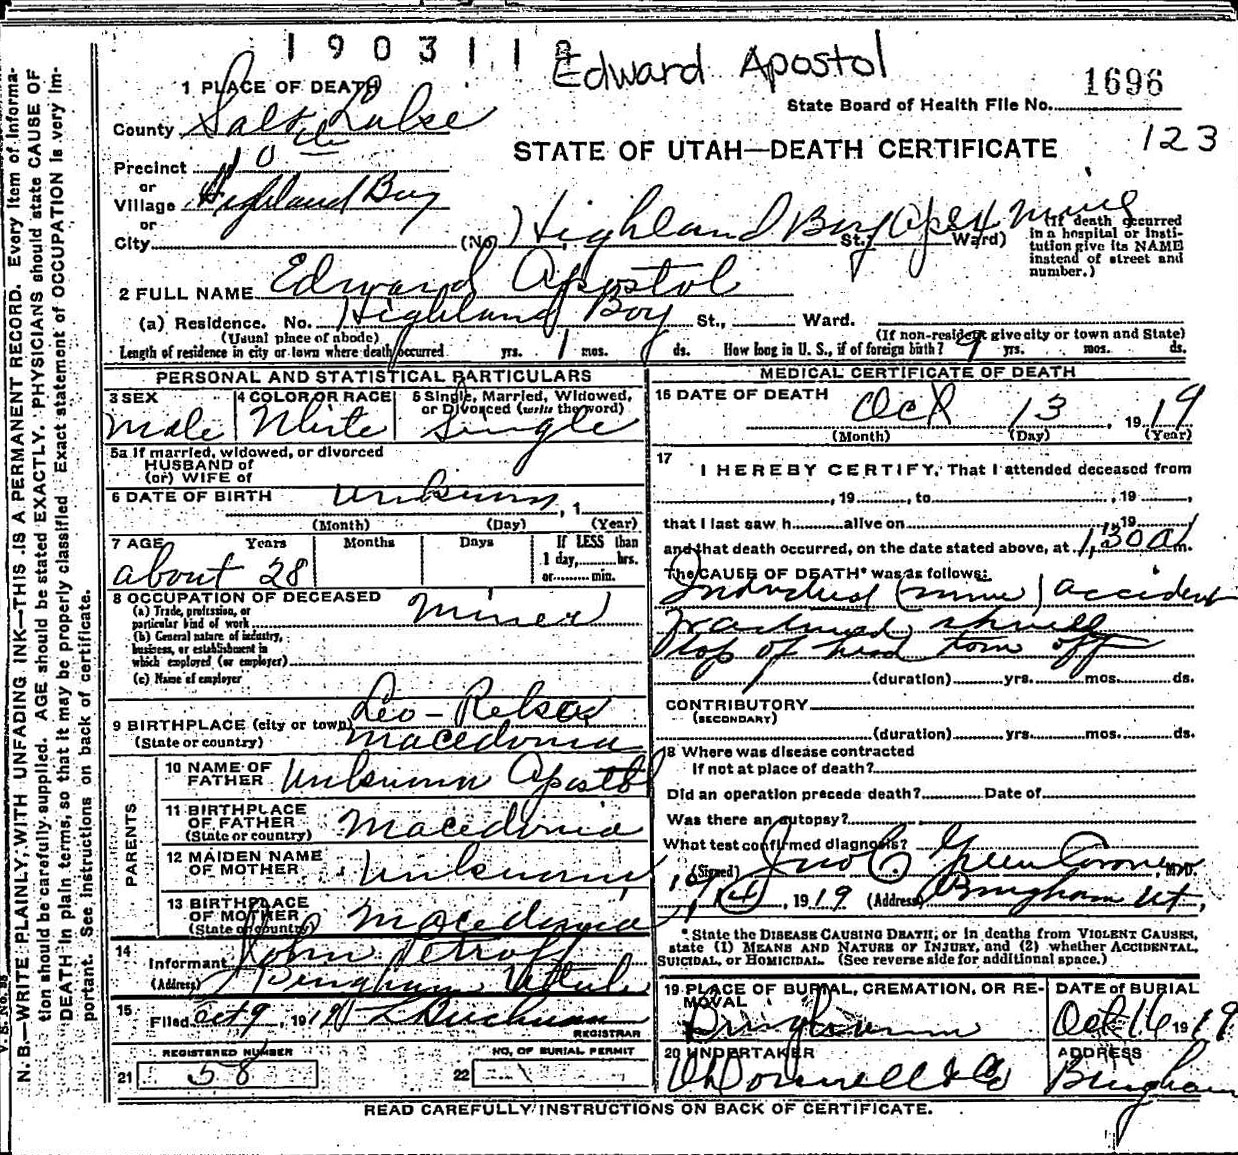 190311
Edward Apostol
1696
State Board of Health File No.
123
STATE OF UTAH—DEATH CERTIFICATE
1 PLACE OF DEATH
County Salt Lake
Precinct 10
or
Village Highland Boy
or
City (No. Highland Boy Apex Mine St., Ward)
(If death occurred in a hospital or institution give its NAME instead of street and number.)
2 FULL NAME Edward Apostol
(a) Residence. No. Highland Boy St., Ward.
(Usual place of abode) (If non-resident give city or town and State)
Length of residence in city or town where death occurred yrs. 1 mos. ds. How long in U. S., if of foreign birth? 9 yrs. mos. ds.
PERSONAL AND STATISTICAL PARTICULARS
3 SEX Male
4 COLOR OR RACE White
5 Single, Married, Widowed, or Divorced (write the word) Single
5a If married, widowed, or divorced
HUSBAND of
(or) WIFE of
6 DATE OF BIRTH unknown, 1
(Month) (Day) (Year)
7 AGE Years Months Days If LESS than 1 day, hrs. or min.
about 28
8 OCCUPATION OF DECEASED
(a) Trade, profession, or particular kind of work Miner
(b) General nature of industry, business, or establishment in which employed (or employer)
(c) Name of employer
9 BIRTHPLACE (city or town)
(State or country) Macedonia
PARENTS
10 NAME OF FATHER Unknown Apostol
11 BIRTHPLACE OF FATHER (State or country) Macedonia
12 MAIDEN NAME OF MOTHER Unknown
13 BIRTHPLACE OF MOTHER (State or country) Macedonia
14 Informant John Petroff
(Address) Bingham Utah
15 Filed Oct 9, 19
REGISTRAR
REGISTERED NUMBER
21 58
NO. OF BURIAL PERMIT
22
MEDICAL CERTIFICATE OF DEATH
16 DATE OF DEATH Oct 13, 1919
(Month) (Day) (Year)
17 I HEREBY CERTIFY, That I attended deceased from
, 19 , to , 19 ,
that I last saw h alive on , 19
and that death occurred, on the date stated above, at 1,30 a m.
The CAUSE OF DEATH* was as follows:
(mine) accident
Fractured skull
Top of head torn off
(duration) yrs. mos. ds.
CONTRIBUTORY
(SECONDARY)
(duration) yrs. mos. ds.
18 Where was disease contracted
If not at place of death?
Did an operation precede death? Date of
Was there an autopsy?
What test confirmed diagnosis?
(Signed) Jno C. Green Coroner, M.D.
10/14, 1919 (Address) Bingham Ut,
*State the DISEASE CAUSING DEATH, or in deaths from VIOLENT CAUSES,
state (1) MEANS AND NATURE OF INJURY, and (2) whether ACCIDENTAL,
SUICIDAL, or HOMICIDAL. (See reverse side for additional space.)
19 PLACE OF BURIAL, CREMATION, OR REMOVAL Bingham
DATE of BURIAL Oct 16 1919
20 UNDERTAKER O'Donnell & Co
ADDRESS Bingham
READ CAREFULLY INSTRUCTIONS ON BACK OF CERTIFICATE.
N. B.—WRITE PLAINLY, WITH UNFADING INK—THIS IS A PERMANENT RECORD. Every item of information should be carefully supplied. AGE should be stated EXACTLY. PHYSICIANS should state CAUSE OF DEATH in plain terms, so that it may be properly classified. Exact statement of OCCUPATION is very important. See instructions on back of certificate.